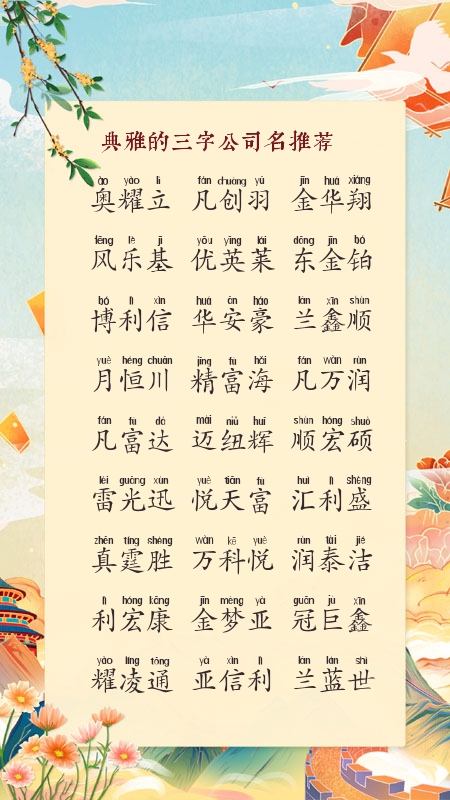 典雅的三字公司名推荐
ào yào lì fán chuàng yǔ jīn huá xiáng
奥耀立 凡创羽 金华翔
fēng lè jī yōu yīng lái dōng jīn bó
风乐基 优英莱 东金铂
bó lì xìn huá ān háo lán xīn shùn
博利信 华安豪 兰鑫顺
yuè héng chuān jīng fù hǎi fán wàn rùn
月恒川 精富海 凡万润
fán fù dá mài niǔ huī shùn hóng shuò
凡富达 迈纽辉 顺宏硕
léi guāng xùn yuè tiān fù huì lì shèng
雷光迅 悦天富 汇利盛
zhēn tíng shèng wàn kē yuè rùn tài jié
真霆胜 万科悦 润泰洁
lì hóng kāng jīn mèng yà guān jù xīn
利宏康 金梦亚 冠巨鑫
yào líng tōng yà xìn lì lán lán shì
耀凌通 亚信利 兰蓝世